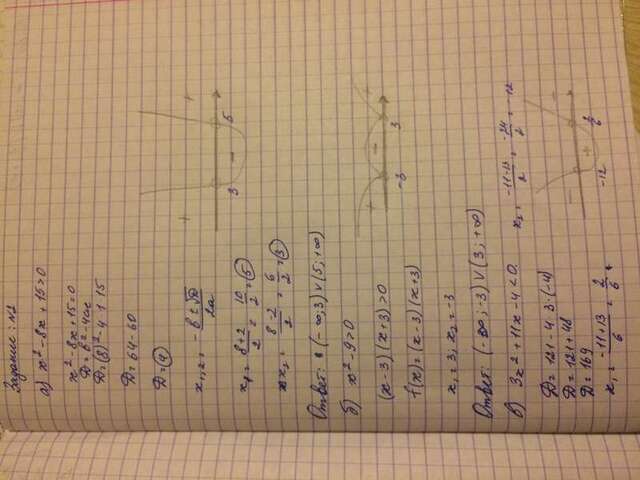 Задание: №1
а) x² - 8x + 15 > 0
x² - 8x + 15 = 0
D = b² - 4ac
D = (8)² - 4 · 1 · 15
D = 64 - 60
D = 4
x₁,₂ = -b ± √D / 2a
x₁ = 8+2 / 2 = 10 / 2 = 5
x₂ = 8-2 / 2 = 6 / 2 = 3
+ - +
3 5
Ответ: (-∞; 3) ∨ (5; +∞)
б) x² - 9 > 0
(x-3)(x+3) > 0
f(x) = (x-3)(x+3)
x₁ = 3; x₂ = -3
+ - +
-3 3
Ответ: (-∞; -3) ∨ (3; +∞)
в) 3x² + 11x - 4 < 0
D = 121 - 4 · 3 · (-4)
D = 121 + 48
D = 169
x₁ = -11+13 / 6 = 2 / 6
x₂ = -11-13 / 2 = -24 / 2 = -12
-12 2/6